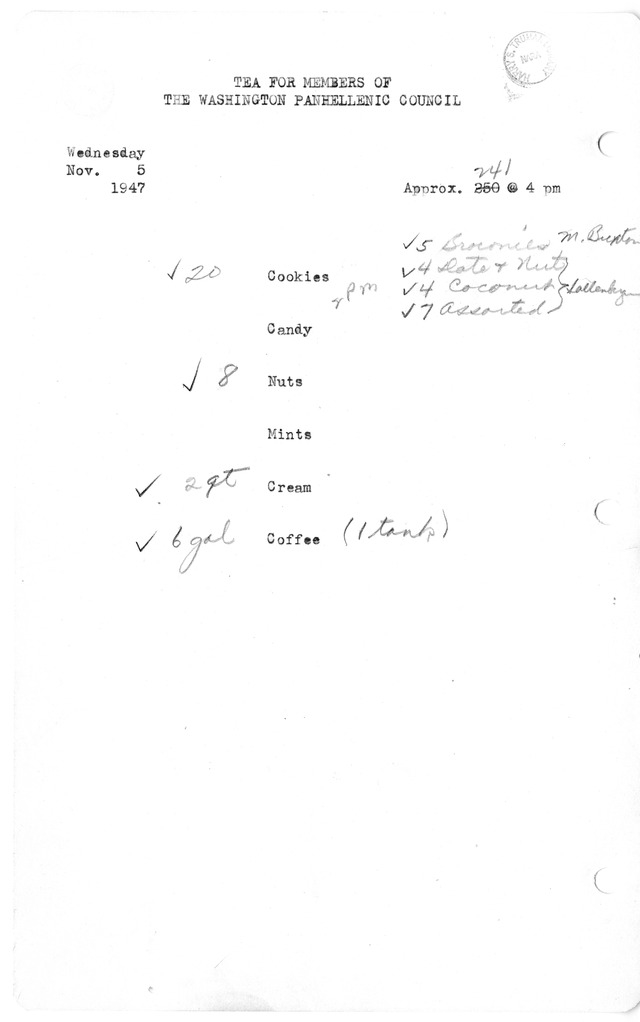 HARRY S. TRUMAN
TEA FOR MEMBERS OF
THE WASHINGTON PANHELLENIC COUNCIL
Wednesday
Nov. 5
1947
241
Approx. 250 @ 4 pm
✓5 Brownies M. Buxton
✓4 Date & Nut
✓4 Coconut
✓7 Assorted
✓20 Cookies
pm
Candy
✓ 8 Nuts
Mints
✓ 2 qt Cream
✓ 6 gal Coffee (1 tank)